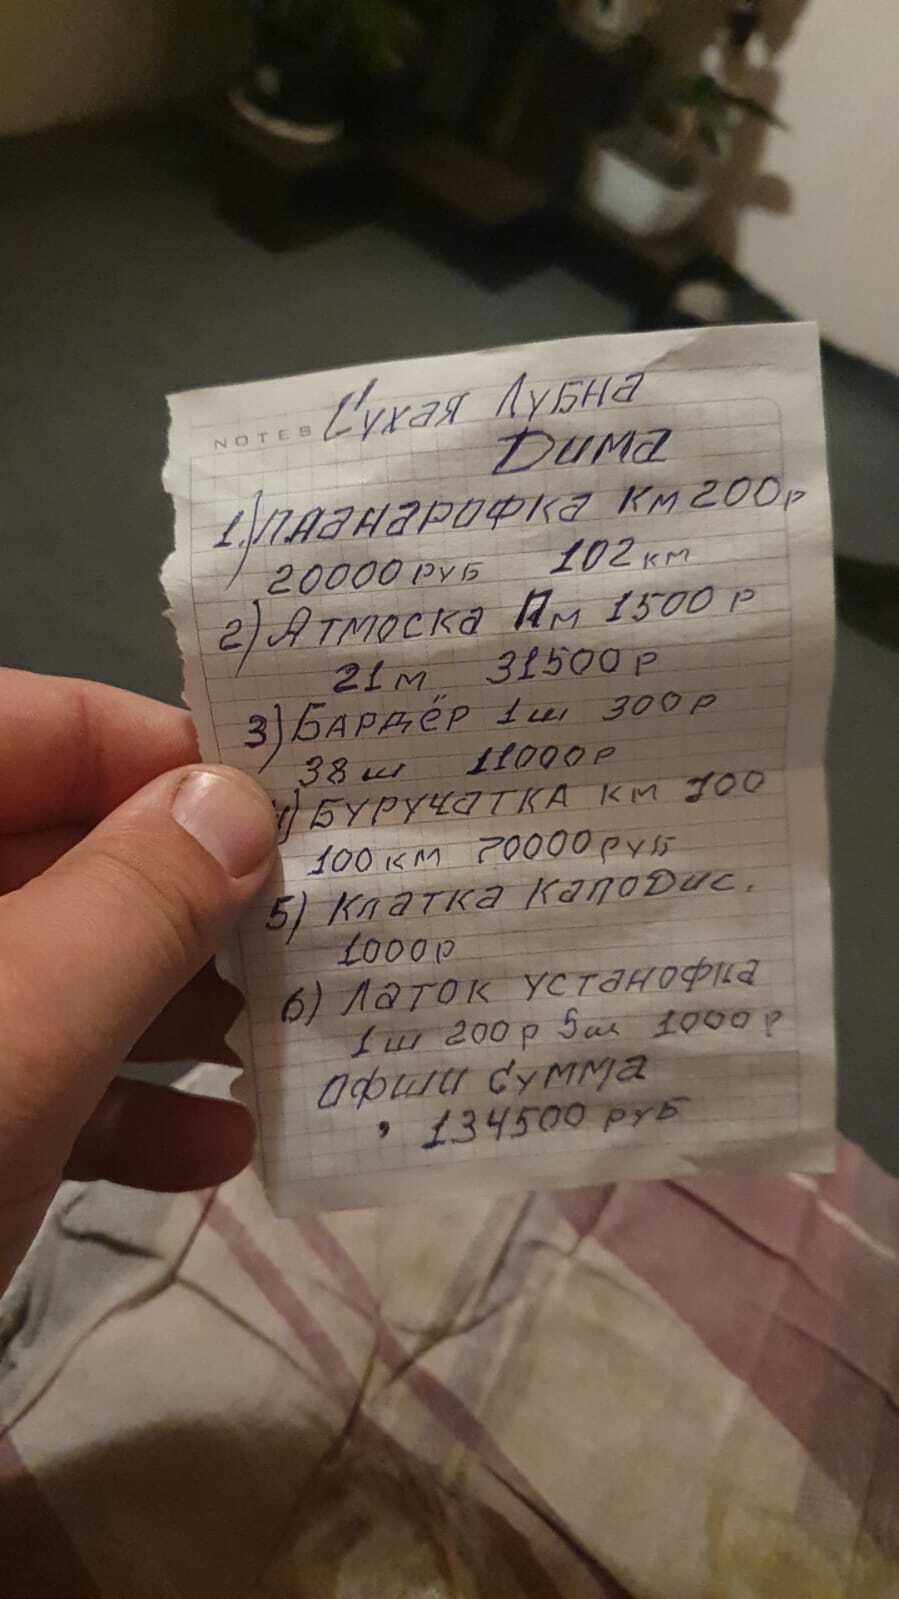 NOTES Сухая Лубна
Дима
1.) планарофка км 200р
20000 руб 102 км
2) Атмоска Пм 1500 р
21 м 31500 р
3) Бардёр 1 ш 300 р
38 ш 11000р
4) Буручатка км 700
100 км 70000 руб
5) Клатка Каподис.
1000р
6) Латок установка
1 ш 200 р 5 ш 1000 р
Офши Сумма
134500 руб